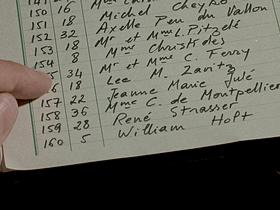 150 16 Michel Cheyko
151 18 Axelle Peu du Vallon
152 32 Mr et Mme L. Pitzelé
153 18 Mme Christides
154 8 Mr et Mme C. Ferry
34 Lee M. Zavitz
18 Jeanne Marie Julé
157 22 Mme C. de Montpellier
158 36 René Strasser
159 28 William Hoft
160 5